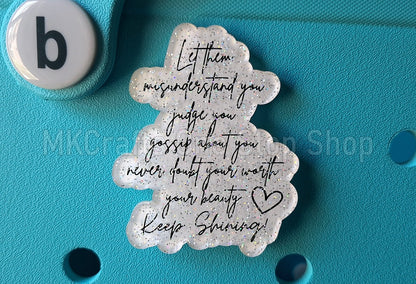 b
Let them
misunderstand you
judge you
gossip about you
never doubt your worth
your beauty
Keep Shining!
MKCraf
Shop